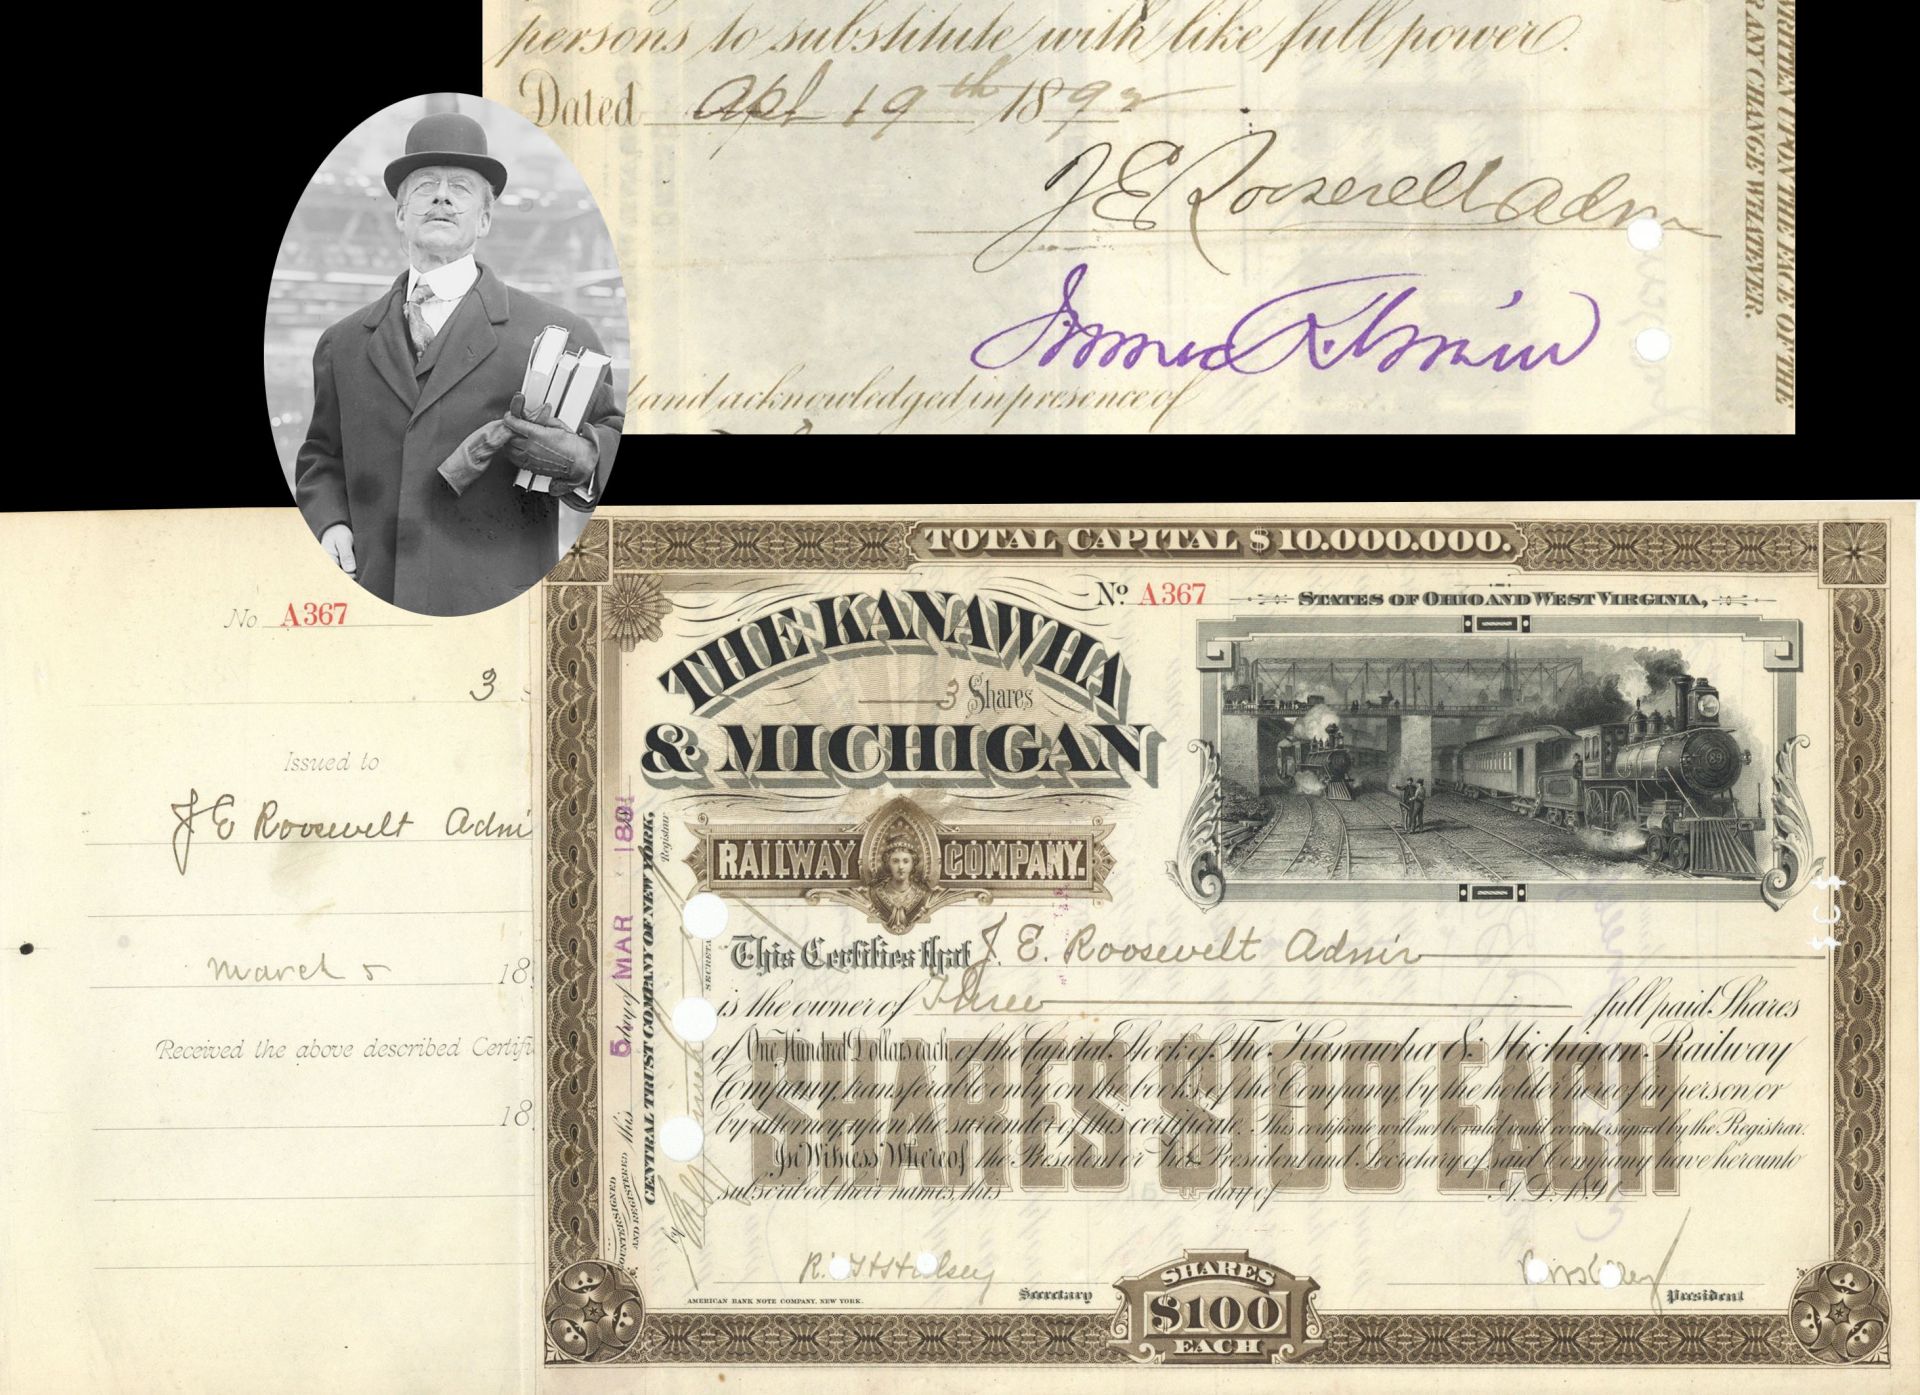 persons to substitute with like full power.
Dated Apl 19th 1892
J E Roosevelt Adm
and acknowledged in presence of
WRITTEN UPON THE FACE OF THE
R ANY CHANGE WHATEVER.
No A367
3
Issued to
J E Roosevelt Admi
March 5 18
Received the above described Certifi
18
TOTAL CAPITAL $10.000.000.
No. A367
STATES OF OHIO AND WEST VIRGINIA,
THE KANAWHA
3 Shares
& MICHIGAN
RAILWAY COMPANY.
This Certifies that J. E. Roosevelt Admir
is the owner of Three full paid Shares
of One Hundred Dollars each of the Capital Stock of The Kanawha & Michigan Railway
Company, transferable only on the books of the Company, by the holder hereof in person or
by attorney, upon the surrender of this certificate. This certificate will not be valid until countersigned by the Registrar.
In Witness Whereof the President or Vice President and Secretary of said Company have hereunto
subscribed their names, this day of A.D. 1891
SHARES $100 EACH
COUNTERSIGNED
AND REGISTERED this 5 day of MAR 1891
CENTRAL TRUST COMPANY OF NEW YORK,
Registrar
by
SECRETA
R. G H Hulsey
Secretary
President
AMERICAN BANK NOTE COMPANY, NEW YORK.
SHARES
$100
EACH